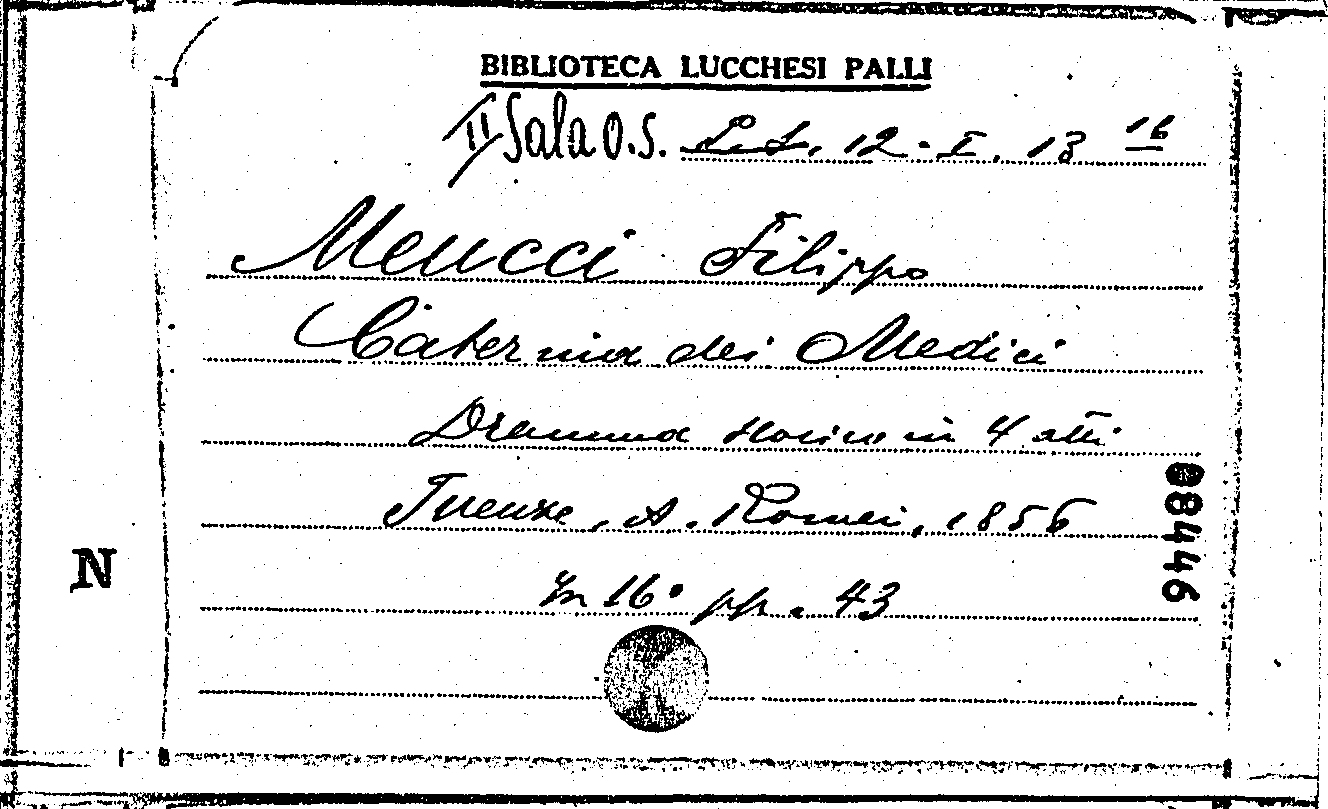 BIBLIOTECA LUCCHESI PALLI
II Sala O.S. L.I. 12-I. 13 16
Meucci Filippo
Caterina dei Medici
Dramma storico in 4 atti
Firenze, A. Romei, 1856
In 16° pp. 43
N
08446